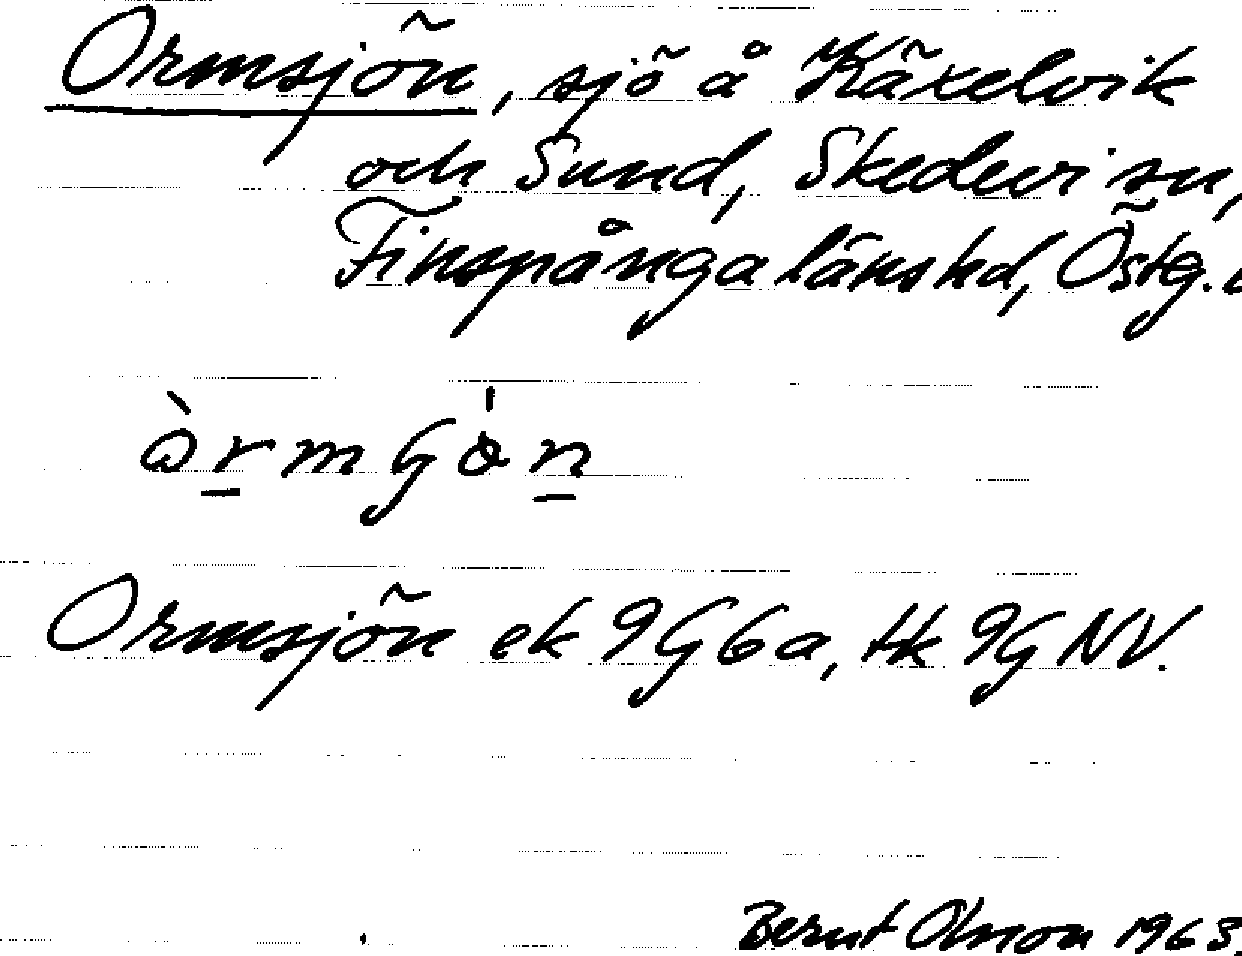 Ormsjön, sjö å Käxelvik
och Sund, Skedevi sn,
Finspånga länshd, Östg. l
Ormsjön ek 9G6a, tk 9G NV.
Bernt Olsson 1963.